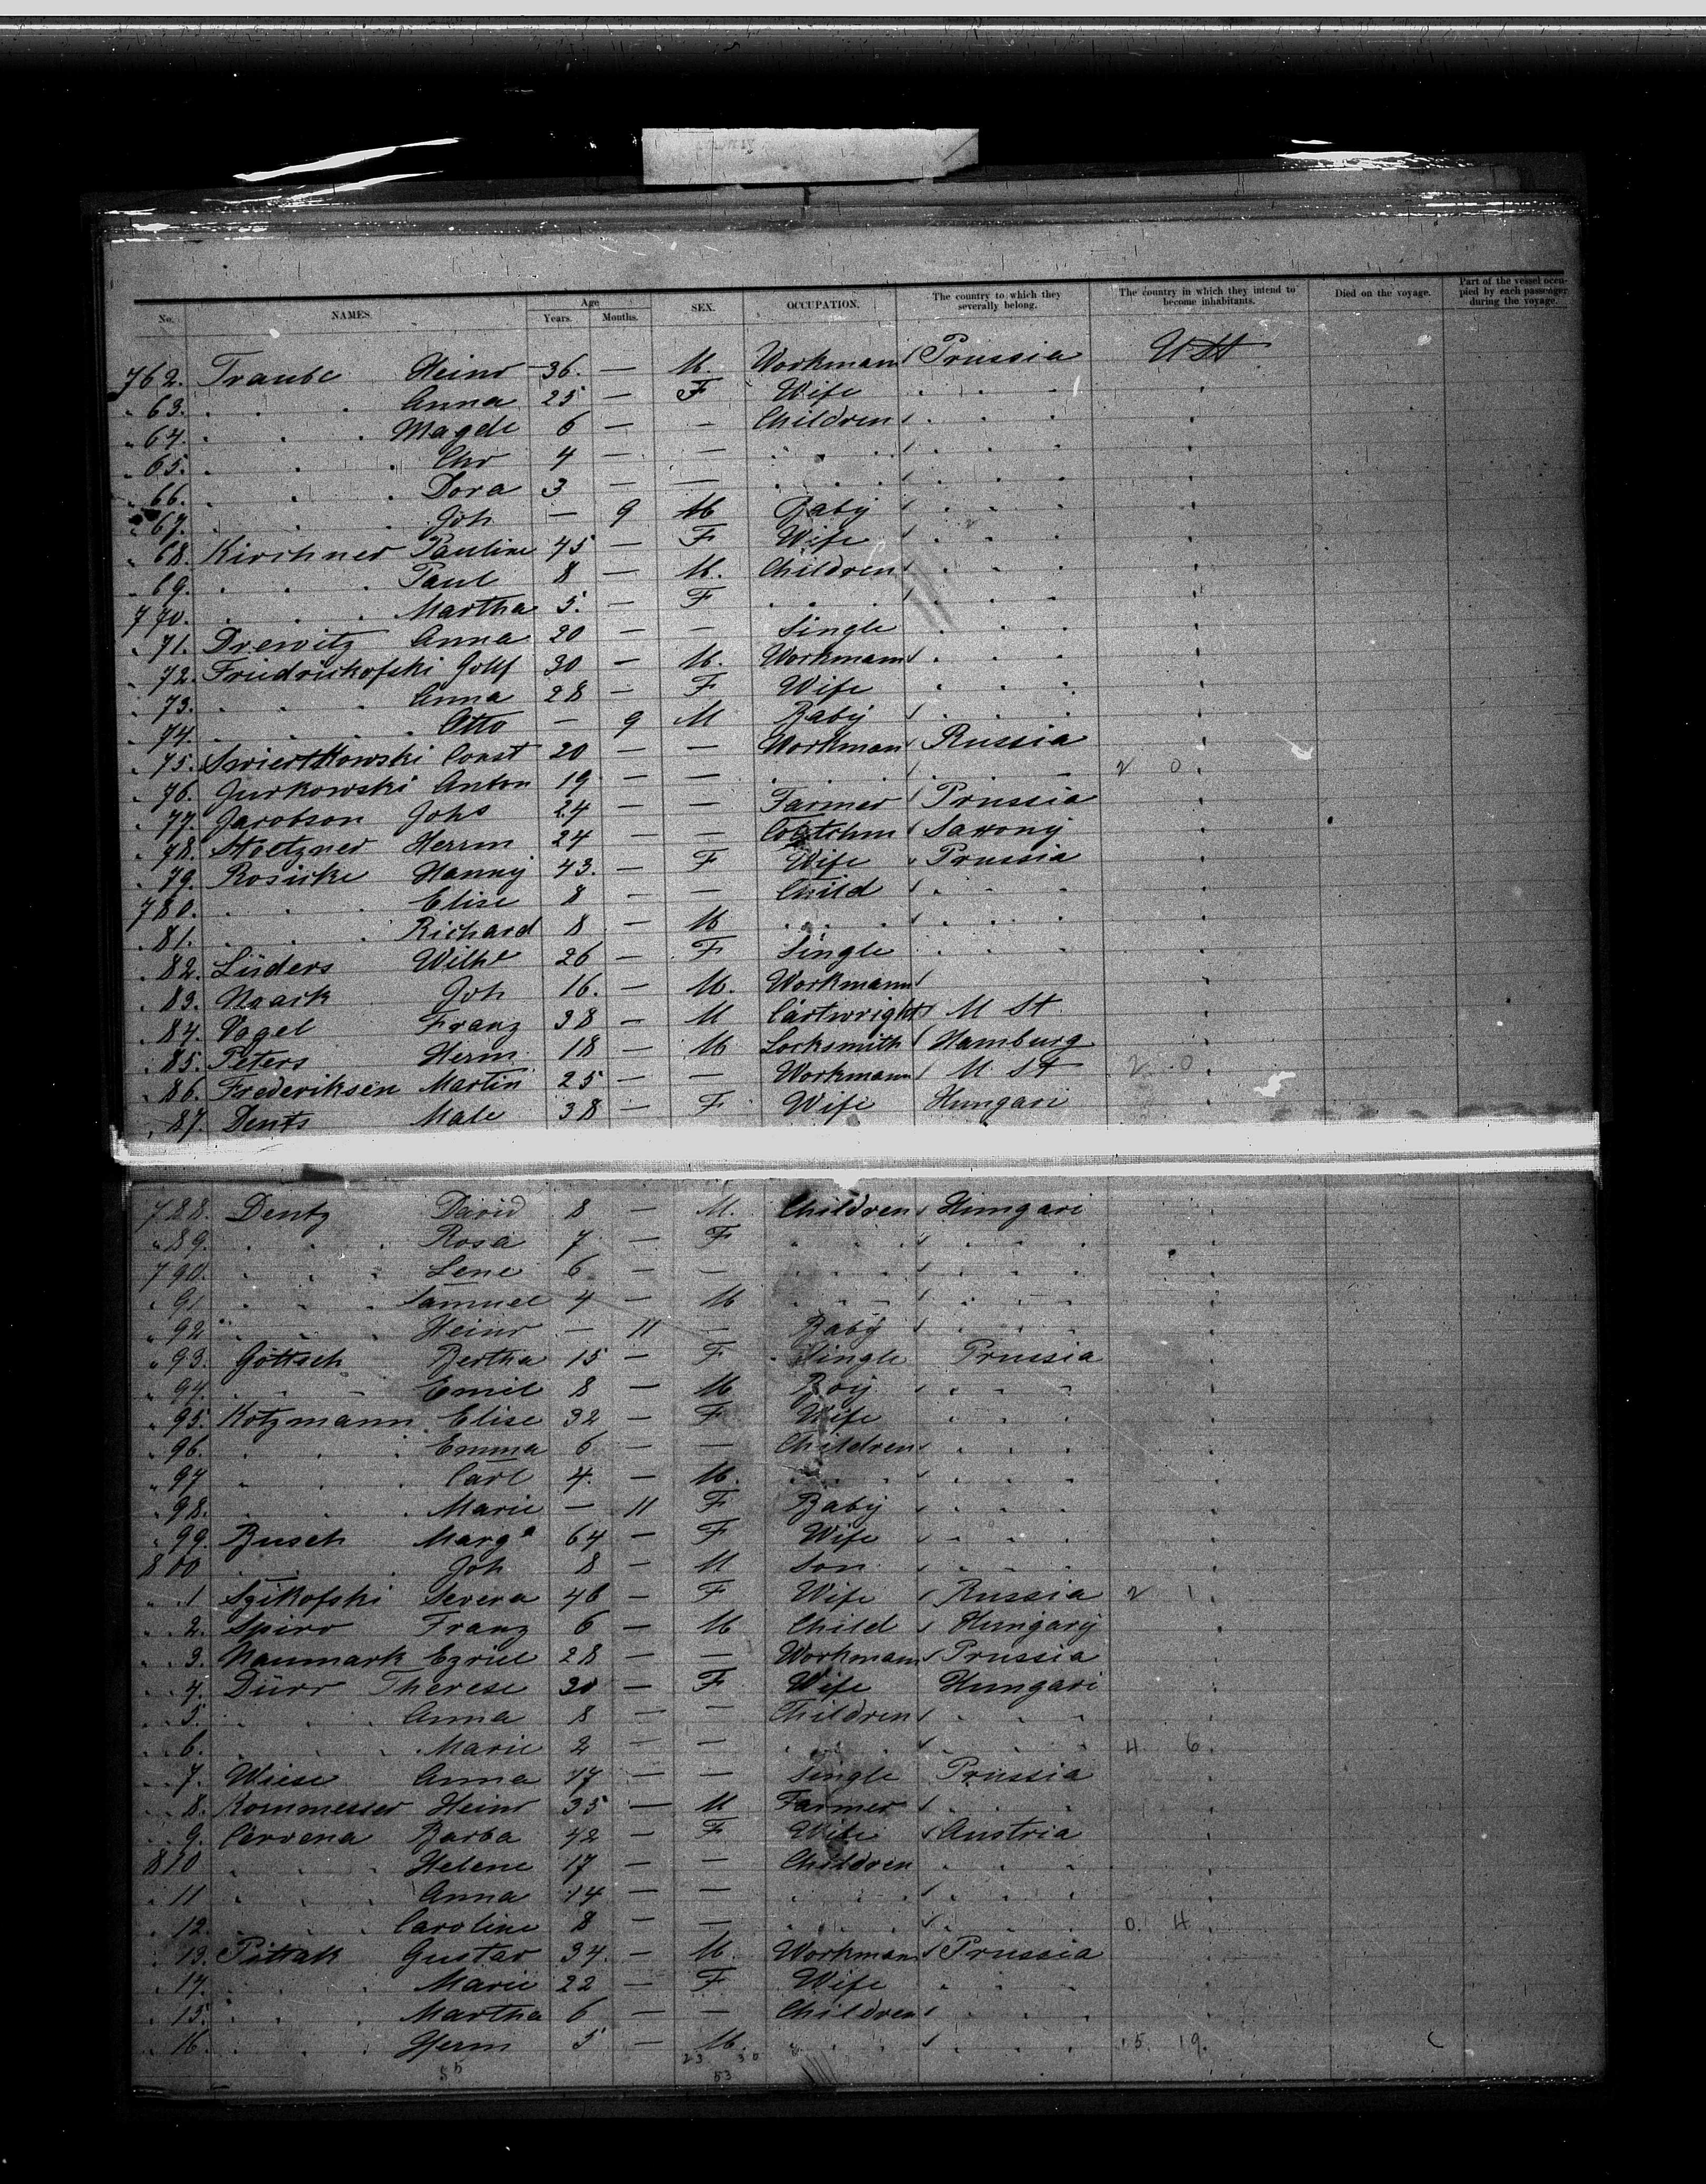 No. NAMES. Age Years. Months. SEX. OCCUPATION. The country to which they severally belong. The country in which they intend to become inhabitants. Died on the voyage. Part of the vessel occupied by each passenger during the voyage.
762. Traube Heinr 36. — M. Workman Prussia USt
" 63. " " " Anna 25 — F Wife " " "
" 64. " " " Magdl 6 — - Children " " "
" 65. " " " Chr 4 — — " " " "
" 66. " " " Dora 3 — — " " " "
" 67. " " " Joh — 9 M Baby " " "
" 68. Kirschner Pauline 45 — F Wife " " "
" 69. " " " Paul 8 — M. Children " " "
770. " " " Martha 5. — F " " " "
" 71. Drewitz Anna 20 — — Single " " "
" 72. Friedrickofski 30 — M. Workmann " " "
" 73. " " " Anna 28 — F Wife " " "
" 74. " " " Otto — 9 M Baby " " "
" 75. Swiertkowski Const 20 — — Workman Russia
" 76. Jurkowski Anton 19 — — " " " 2 0.
" 77. Jacobson Johs 24 — — Farmer Prussia
" 78. Herrm 24 — — Saxony
" 79. Rosicke Hanny 43. — F Wife Prussia
780. " " " Elise 8 — — Child " " "
" 81. " " " Richard 8 — M " " " "
" 82. Lüders Wilhe 26 — F Single " " "
" 83. Naark Joh 16. — M. Workmann
" 84. Vogel Franz 38 — M Cartwright M St
" 85. Peters Herm 18 — M Locksmith Hamburg
" 86. Frederiksen Martin 25 — — Workmann M St 2 0.
" 87. Dents Male 38 — F Wife Hungari
788. Dentz David 8 — M. Children Hungari
" 89. " " " Rosa 7 — F " " " "
790. " " " Lene 6 — — " " " "
" 91 " " " Samuel 4 — M " " " "
" 92 " " " Heinr — 11 — Baby " " "
" 93. Göttsch Bertha 15 — F Single Prussia
" 94. " " " Emil 8 — M Boy " " "
" 95. Kotzmann Elise 32 — F Wife " " "
" 96. " " " Emma 6 — — Children " " "
" 97 " " " Carl 4. — M. " " " "
" 98. " " " Marie — 11 F Baby " " "
" 99. Busch Marga 64 — F Wife " " "
800 " " " Joh 8 — M Son " " "
" 1 Szikofski Severa 46 — F Wife Russia 2 1.
" 2. Spiro Franz 6 — M Child Hungary
" 3. Naumark Ezriel 28 — — Workmann Prussia
" 4. Dürr Therese 30 — F Wife Hungari
" 5. " " " Anna 8 — — Children " " "
" 6. " " " Marie 2 — — " " " " 4 6.
" 7. Wiese Anna 17 — — Single Prussia
" 8. Kornmesser Heinr 35 — M Farmer " " "
" 9. Cervena Barba 42 — F Wife Austria
810 " " " Helene 17 — — Children " " "
" 11 " " " Anna 14 — — " " " "
" 12. " " " Caroline 8 — — " " " " 0. 4.
" 13. Pittak Gustav 34. — M. Workman Prussia
" 14. " " " Marie 22 — F Wife " " "
" 15. " " " Martha 6 — — Children " " "
" 16. " " " Herm 5 — M. " " " " 15 19.
55 23 30
53